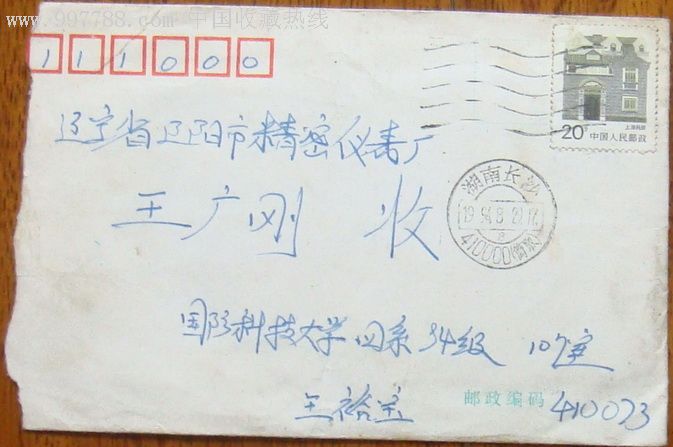 www.997788.com 中国收藏热线
111000
20分 中国人民邮政
辽宁省辽阳市精密仪表厂
湖南长沙
王广刚 收
410000
国防科技大学四系94级
王裕
邮政编码 410073